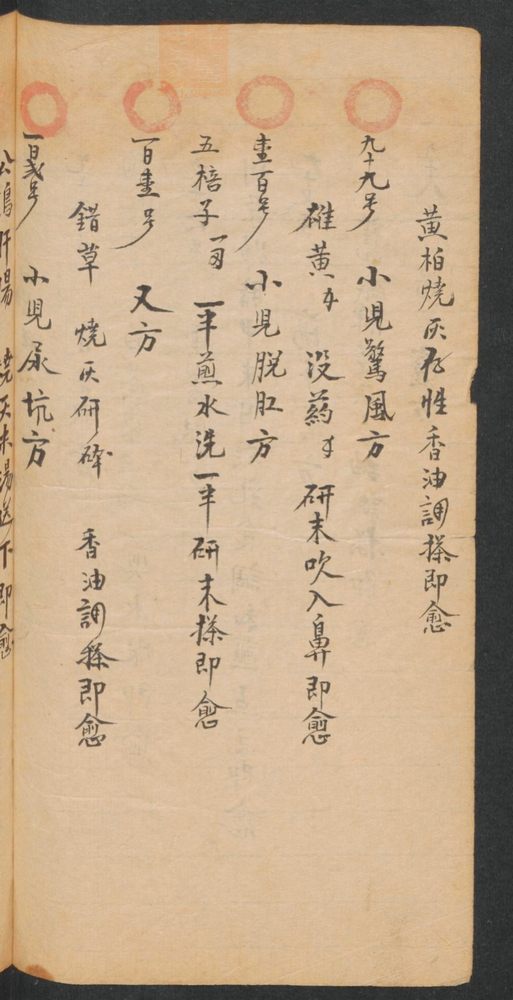 黄柏燒灰存性香油調搽即愈
九十九号 小児驚風方
雄黄 没藥 研末吹入鼻即愈
壹百号 小児脱肛方
五棓子 一半煎水洗一半研末搽即愈
一百壹号 又方
錯草 燒灰研碎 香油調搽即愈
小児尿坑方
肝腸 燒灰末湯送下即愈